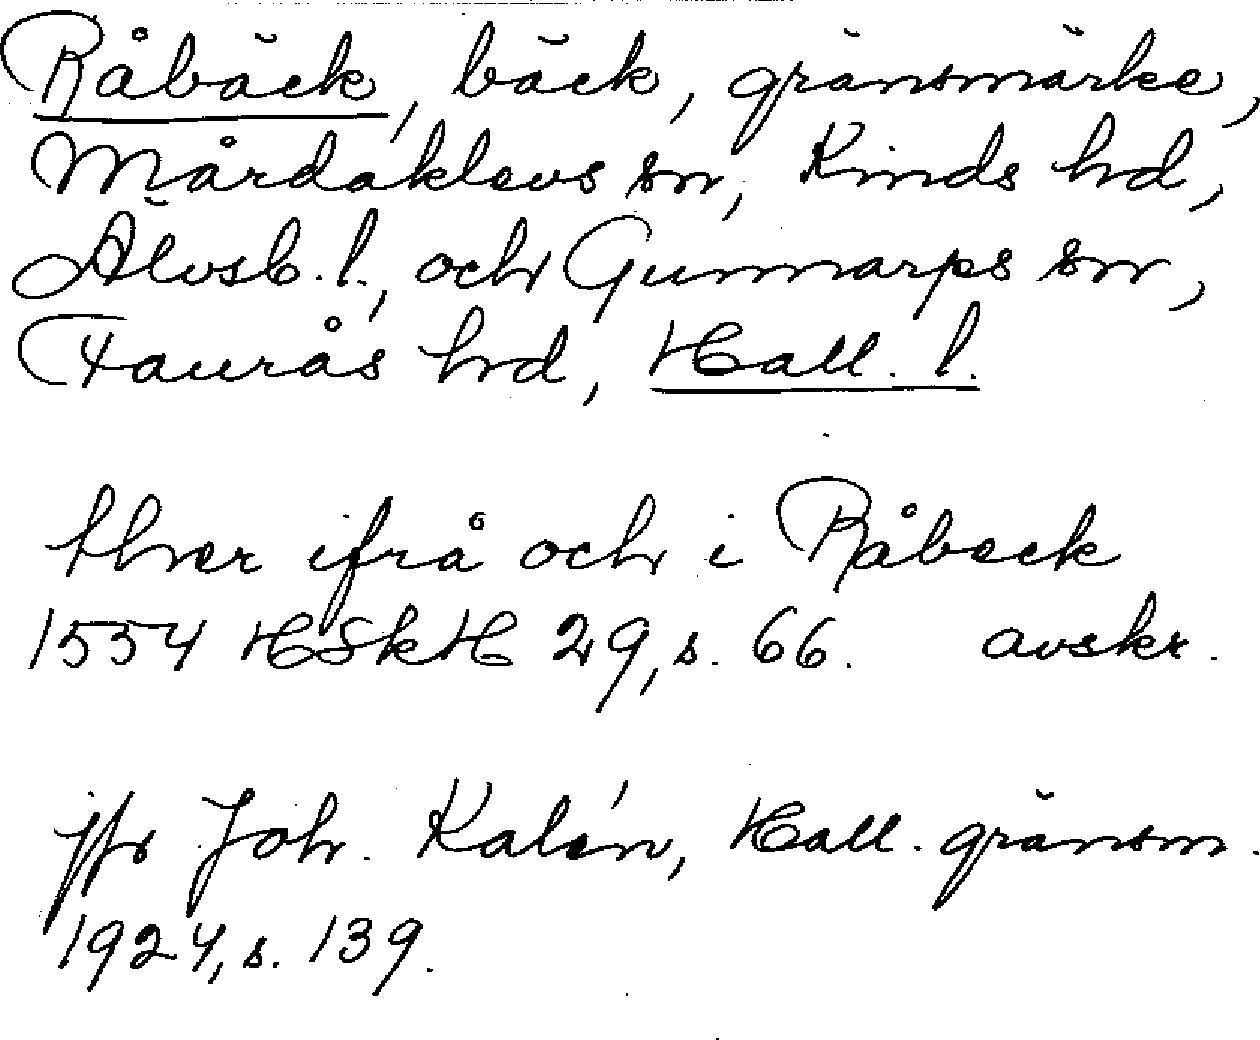 Råbäck, bäck, gränsmärke,
Mårdaklevs sn, Kinds hd,
Älvsb. l., och Gunnarps sn,
Faurås hd, Hall. l.
ther ifrå och i Råbeck
1554 HSkH 29, s. 66. avskr.
jfr Joh. Kalén, Hall. gränsm.
1924, s. 139.